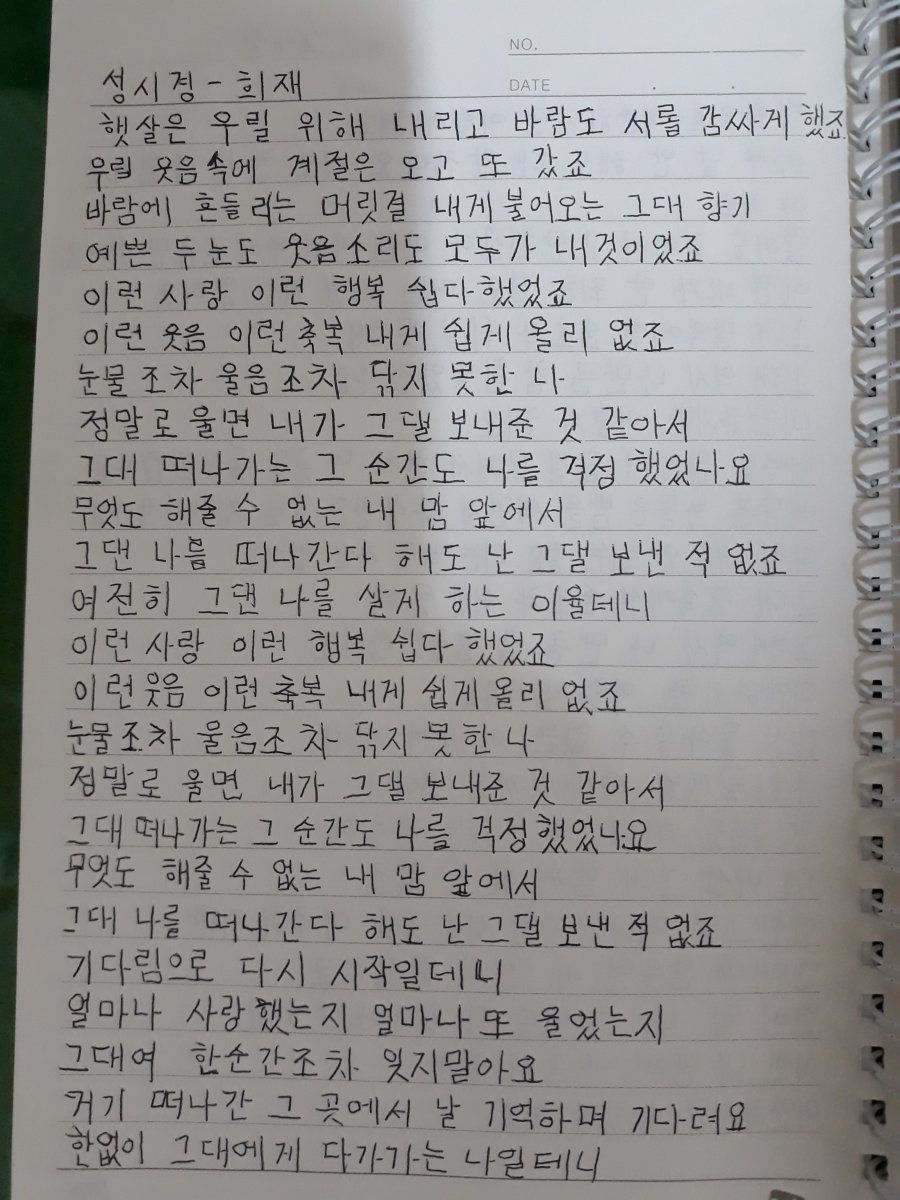 NO.
성시경 - 희재
DATE . .
햇살은 우릴 위해 내리고 바람도 서롤 감싸게 했죠
우릴 웃음속에 계절은 오고 또 갔죠
바람에 흔들리는 머릿결 내게 불어오는 그대 향기
예쁜 두눈도 웃음소리도 모두가 내것이었죠
이런 사랑 이런 행복 쉽다했었죠
이런 웃음 이런축복 내게 쉽게 올리 없죠
눈물조차 울음조차 닦지 못한 나
정말로 울면 내가 그댈 보내준 것 같아서
그대 떠나가는 그 순간도 나를 걱정했었나요
무엇도 해줄 수 없는 내 맘 앞에서
그댄 나를 떠나간다 해도 난 그댈 보낸 적 없죠
여전히 그댄 나를 살게 하는 이율테니
이런사랑 이런 행복 쉽다 했었죠
이런웃음 이런 축복 내게 쉽게올리 없죠
눈물조차 울음조차 닦지 못한 나
정말로 울면 내가 그댈 보내준 것 같아서
그대떠나가는 그 순간도 나를 걱정했었나요
무엇도 해줄 수 없는 내 맘 앞에서
그대 나를 떠나간다 해도 난 그댈 보낸 적 없죠
기다림으로 다시 시작일테니
얼마나 사랑했는지 얼마나 또 울었는지
그대여 한순간조차 잊지말아요
거기 떠나간 그 곳에서 날 기억하며 기다려요
한없이 그대에게 다가가는 나일테니